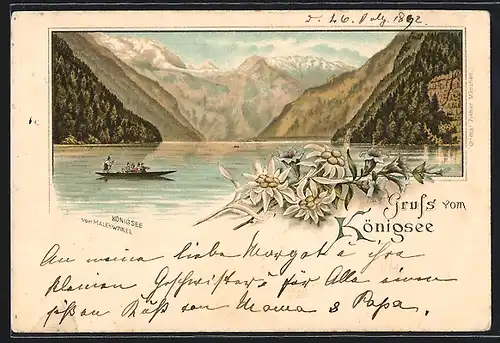 d. 26. July. 1892.
Ottmar Zieher München
KÖNIGSEE
vom MALERWINKEL
Gruß vom
Königsee
An meine liebe Margot u ihre
kleinen Geschwister u für Alle einen
süßen Kuß von Mama & Papa.